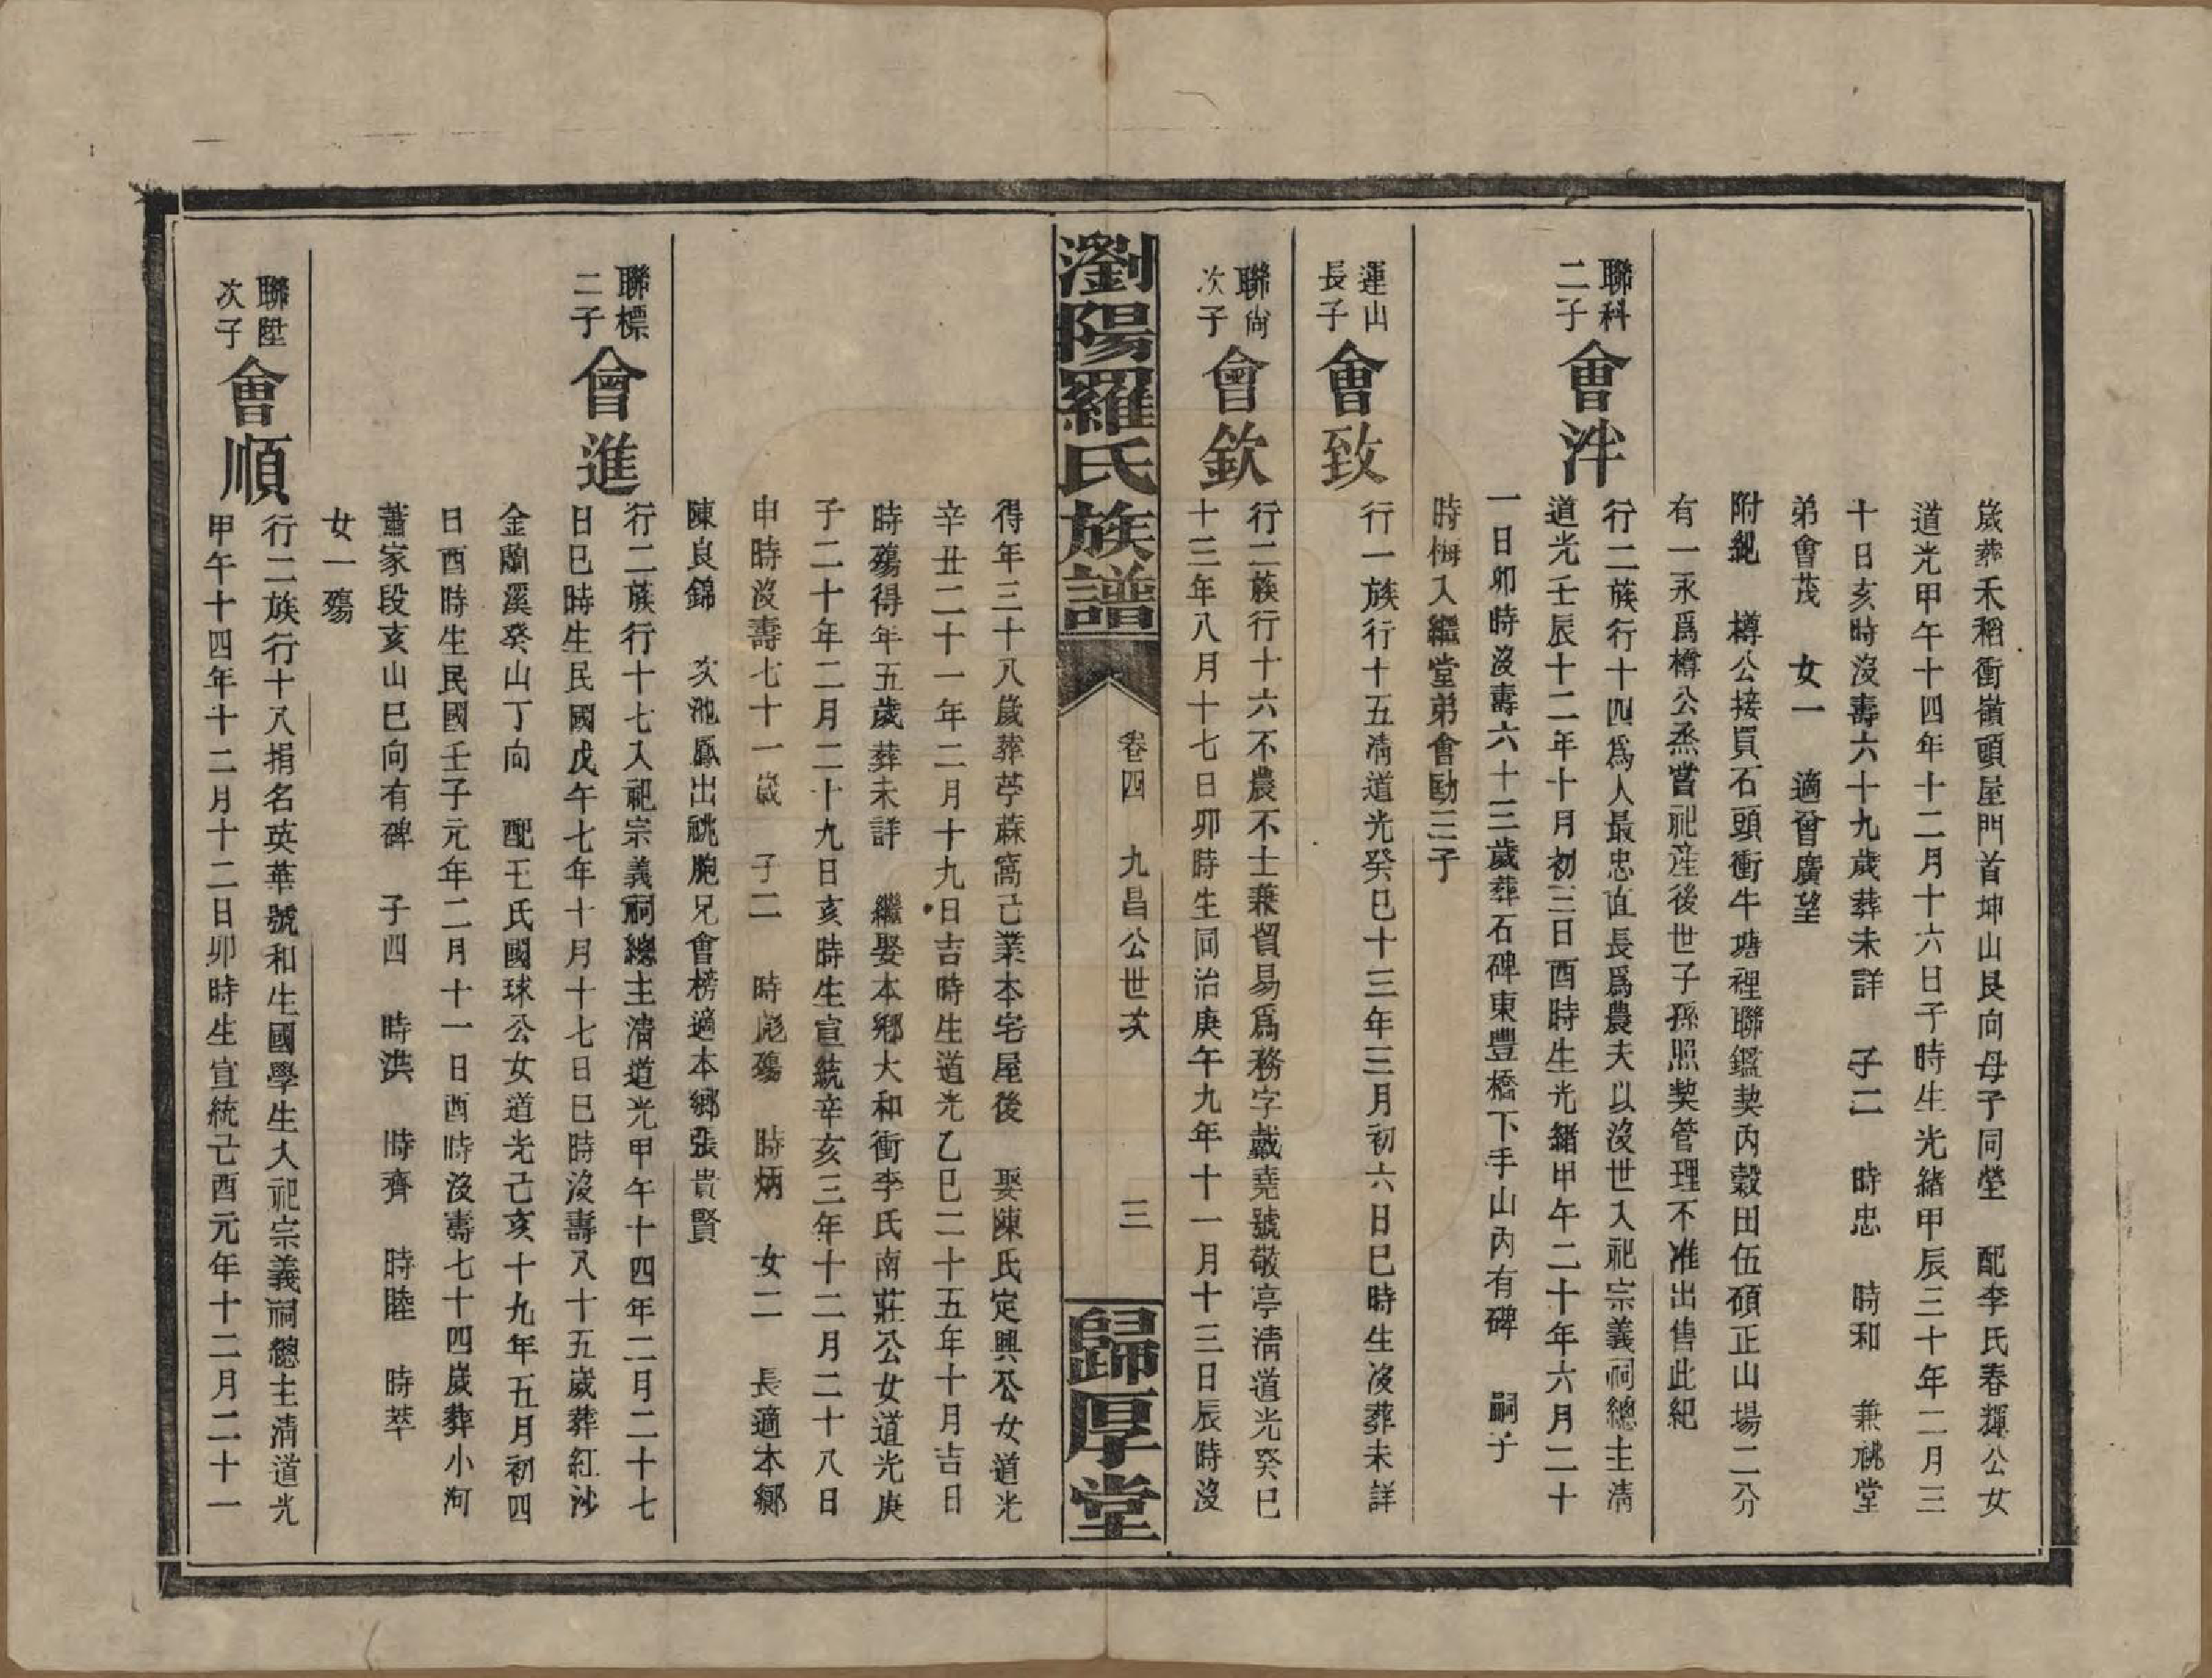 歲葬禾稻衝嶺頭屋門首坤山艮向母子同塋　配李氏春輝公女
道光甲午十四年十二月十六日子時生光緒甲辰三十年二月三
十日亥時沒壽六十九歲葬未詳　子二　時忠　時和　兼祧堂
弟會茂　女一　適曾廣望
附紀　樽公接買石頭衝牛塘裡聯鑑契內穀田伍碩正山場二分
有一永爲樽公烝嘗祀產後世子孫照契管理不准出售此紀
聯科
二子
會泮
行二族行十四爲人最忠直長爲農夫以沒世入祀宗義祠總主清
道光壬辰十二年十月初三日酉時生光緒甲午二十年六月二十
一日卯時沒壽六十三歲葬石碑東豐橋下手山內有碑　嗣子
時梅入繼堂弟會勛三子
運山
長子
會致
行一族行十五清道光癸巳十三年三月初六日巳時生沒葬未詳
聯尙
次子
會欽
行二族行十六不農不士兼貿易爲務字戴堯號敬亭清道光癸巳
十三年八月十七日卯時生同治庚午九年十一月十三日辰時沒
瀏陽羅氏族譜
卷四　九昌公世次　三
歸厚堂
得年三十八歲葬苧蔴窩己業本宅屋後　娶陳氏定興公女道光
辛丑二十一年二月十九日吉時生道光乙巳二十五年十月吉日
時殤得年五歲葬未詳　繼娶本鄉大和衝李氏南莊公女道光庚
子二十年二月二十九日亥時生宣統辛亥三年十二月二十八日
申時沒壽七十一歲　子二　時彪殤　時炳　女二　長適本鄉
陳良錦　次池鳳出祧胞兄會榜適本鄉張貴賢
聯標
二子
會進
行二族行十七入祀宗義祠總主清道光甲午十四年二月二十七
日巳時生民國戊午七年十月十七日巳時沒壽八十五歲葬紅沙
金蘭溪癸山丁向　配王氏國球公女道光己亥十九年五月初四
日酉時生民國壬子元年二月十一日酉時沒壽七十四歲葬小河
蕭家段亥山巳向有碑　子四　時洪　時齊　時睦　時萃
女一殤
聯陞
次子
會順
行二族行十八捐名英華號和生國學生入祀宗義祠總主清道光
甲午十四年十二月十二日卯時生宣統己酉元年十二月二十一